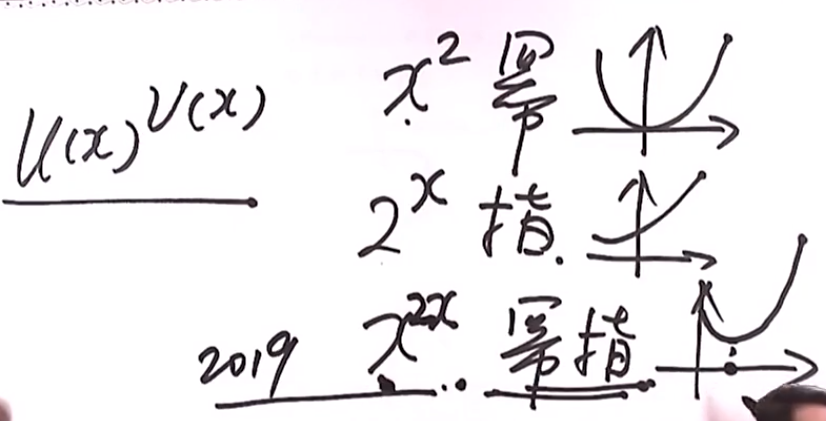 U(x)^V(x)
x^2 幂
2^x 指.
2019 x^2x 幂指